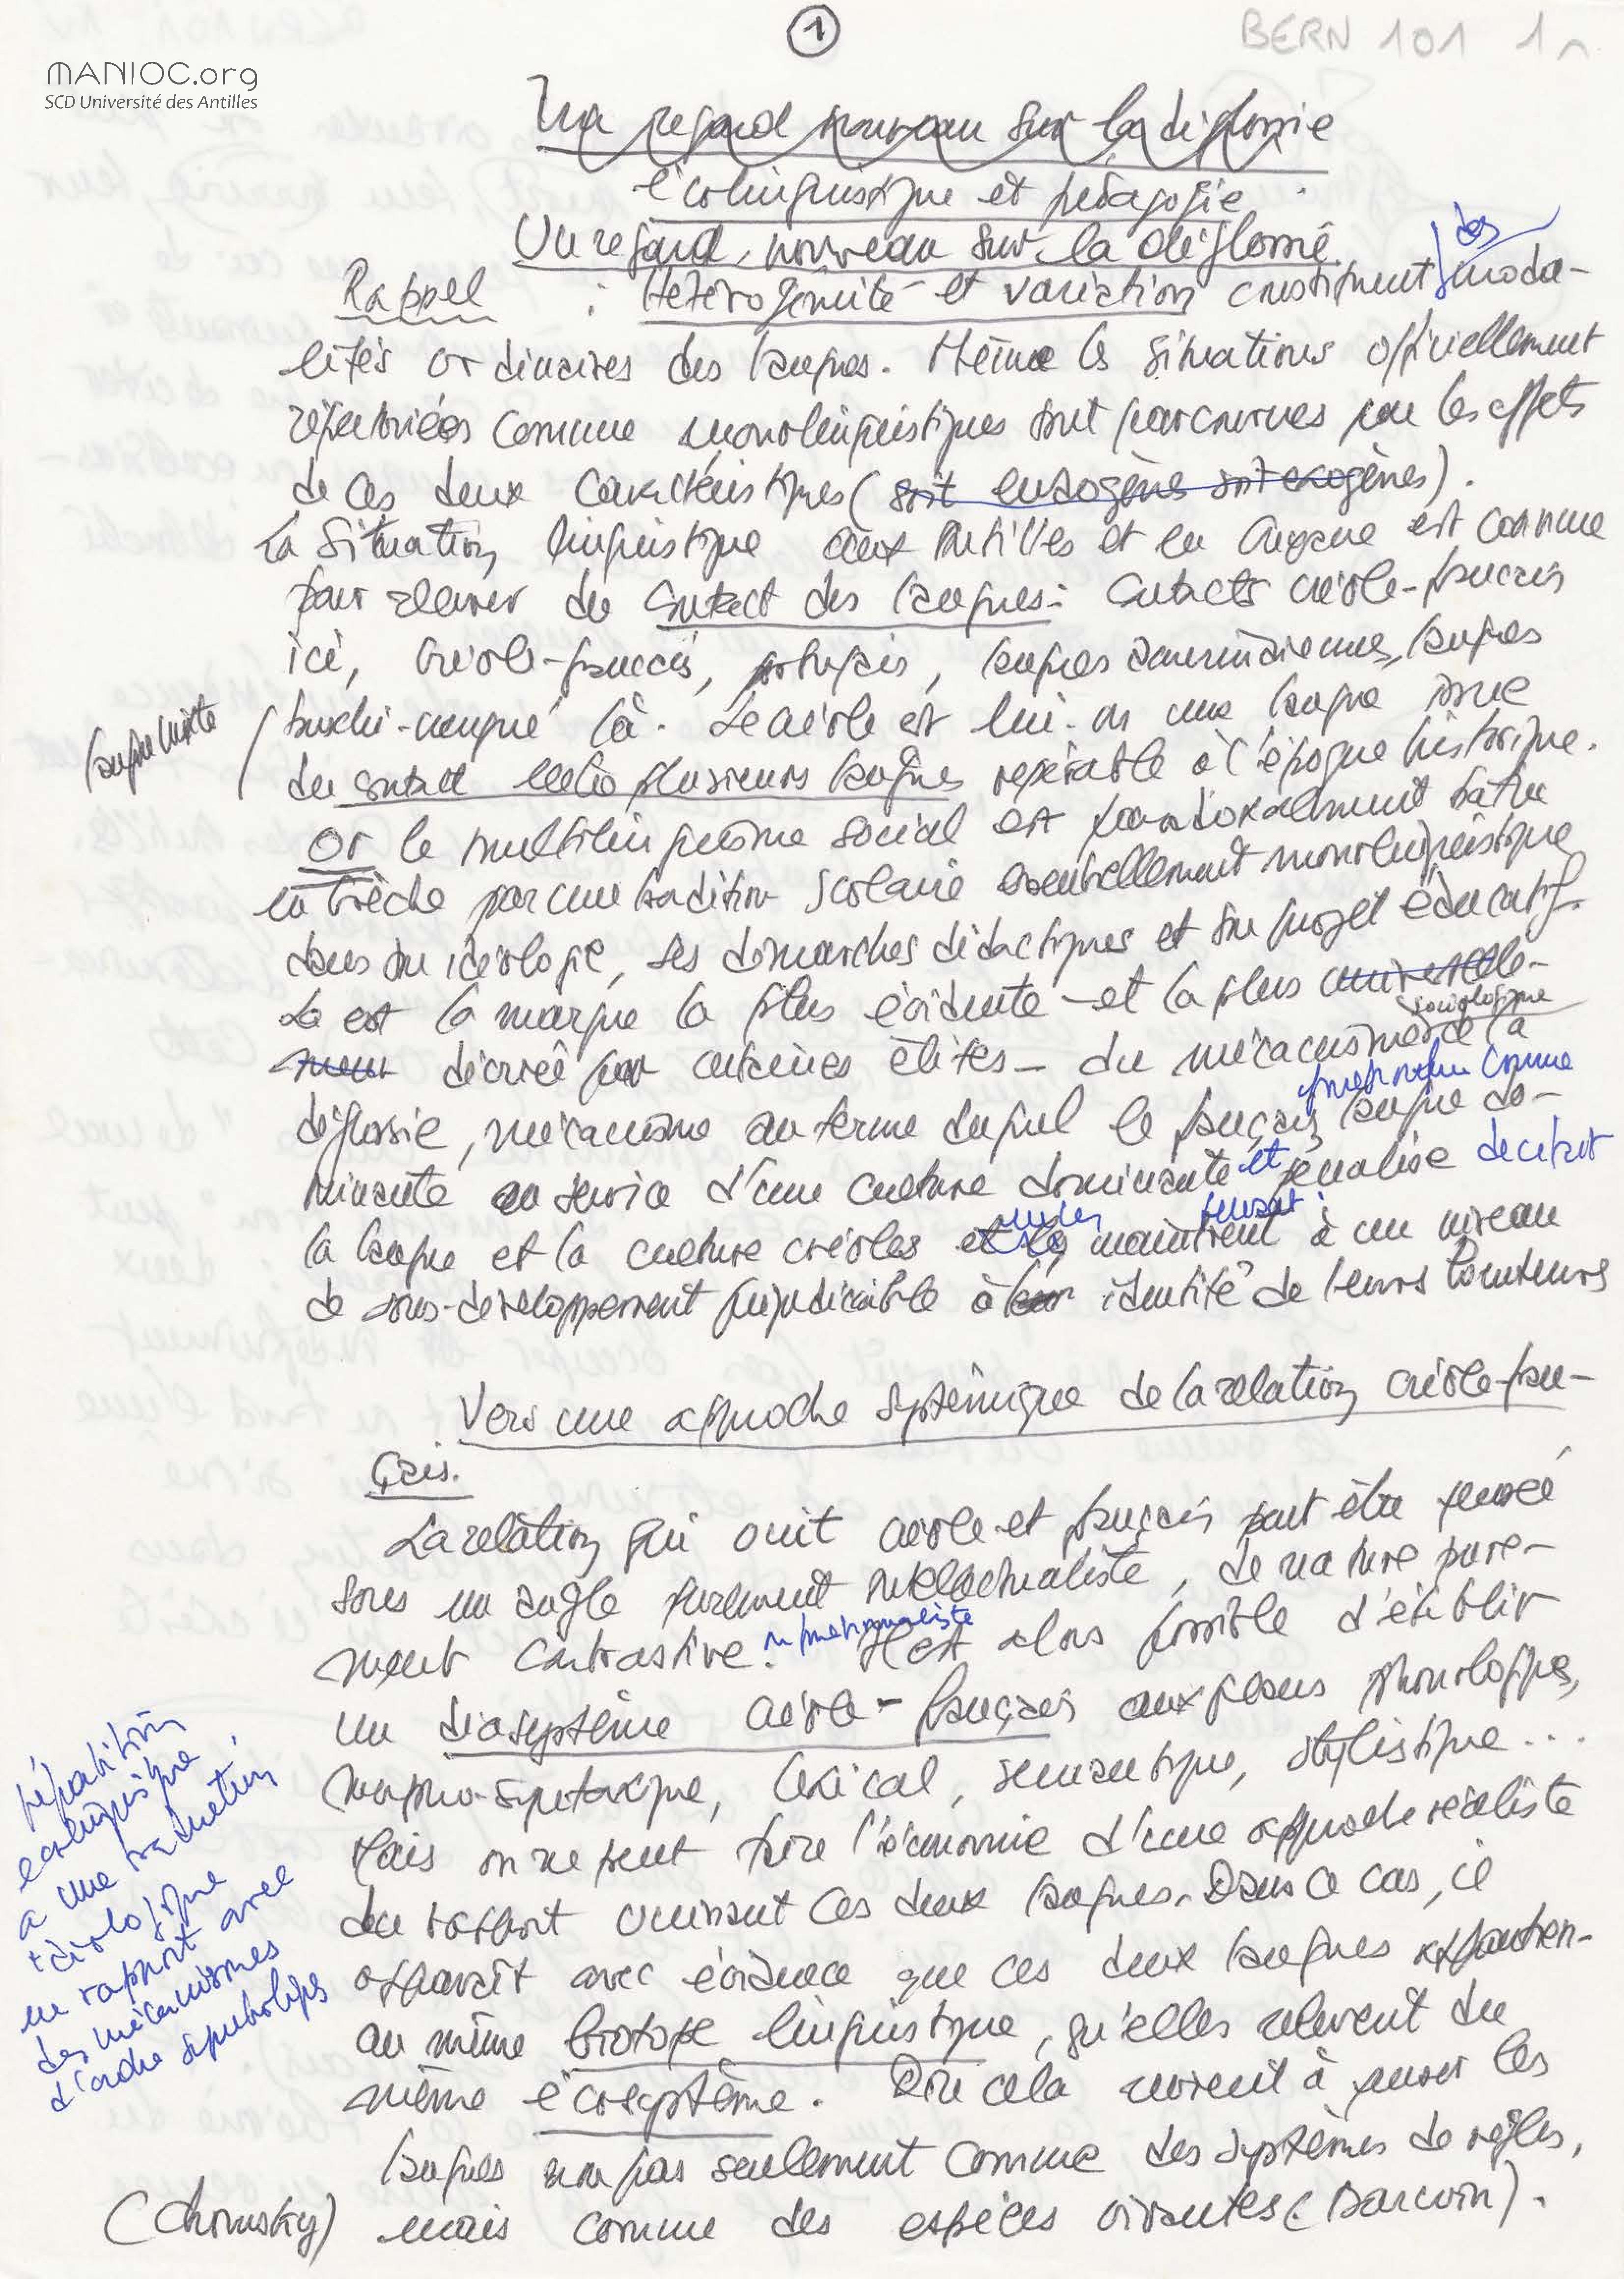 1
BERN 101 1r
MANIOC.org
SCD Université des Antilles
Un regard nouveau sur la diglossie
écolinguistique et pédagogie
Un regard nouveau sur la diglossie
Rappel : Hétérogénéité et variation constituent des moda-
lités ordinaires des langues. Même les situations officiellement
répertoriées comme monolinguistiques sont parcourues par les effets
de ces deux caractéristiques (soit endogènes soit exogènes).
La situation linguistique aux Antilles et en Guyane est connue
pour relever du contact des langues : contacts créole-français
ici, créole-français, portugais, langues amérindiennes, langues
bushi-nengué là. Le créole est lui-m une langue issue
langue mixte
du contact entre plusieurs langues repérable à l'époque historique.
Or le multilinguisme social est paradoxalement battu
en brèche par une tradition scolaire essentiellement monolinguistique
dans son idéologie, ses démarches didactiques et son projet éducatif.
Là est la marque la plus évidente - et la plus universelle-
ment décriée par certaines élites - du mécanisme sociologique de la
diglossie, mécanisme au terme duquel le français langue do-
fonctionne comme
minante au service d'une culture dominante et pénalise
la langue et la culture créoles et les maintient à un niveau
de sous-développement préjudiciable à leur identité de leurs locuteurs
Vers une approche systémique de la relation créole-fran-
çais.
La relation qui unit créole et français peut être pensée
sous un angle purement intellectualiste, de nature pure-
ment contrastive. Il est alors possible d'établir
un diasystème créole-français aux plans phonologique,
morpho-syntaxique, lexical, sémantique, stylistique ...
Mais on ne peut faire l'économie d'une approche réaliste
du rapport unissant ces deux langues. Dans ce cas, il
apparaît avec évidence que ces deux langues appartien-
au même biotope linguistique, qu'elles relèvent du
même écosystème. Dire cela revient à penser les
langues non pas seulement comme des systèmes de règles,
(Chomsky) mais comme des espèces vivantes (Darwin).
répartition
a une traduction
idéologique
en rapport avec
des mécanismes
d'ordre symbolique